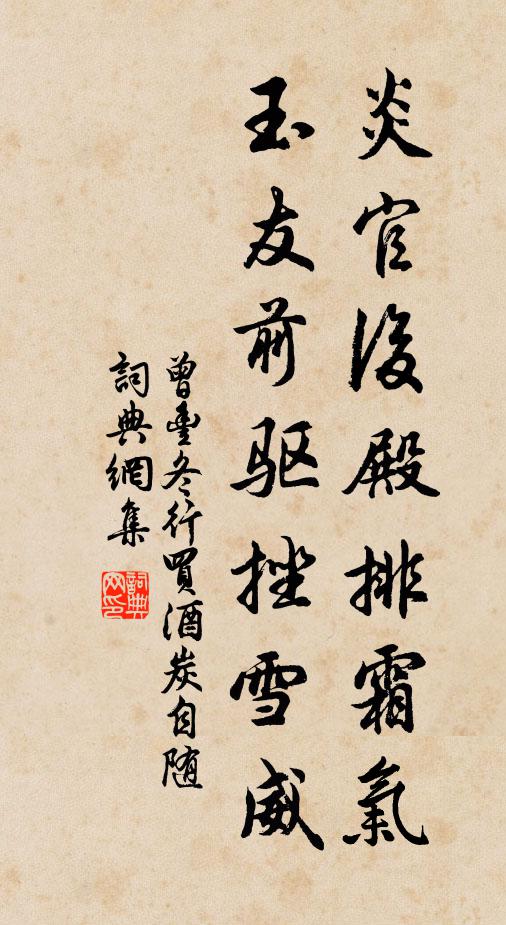 炎官後殿排霜氣
玉友前驱挫雪威
曾豐冬行買酒炭自随
詞典網集
詞典網印